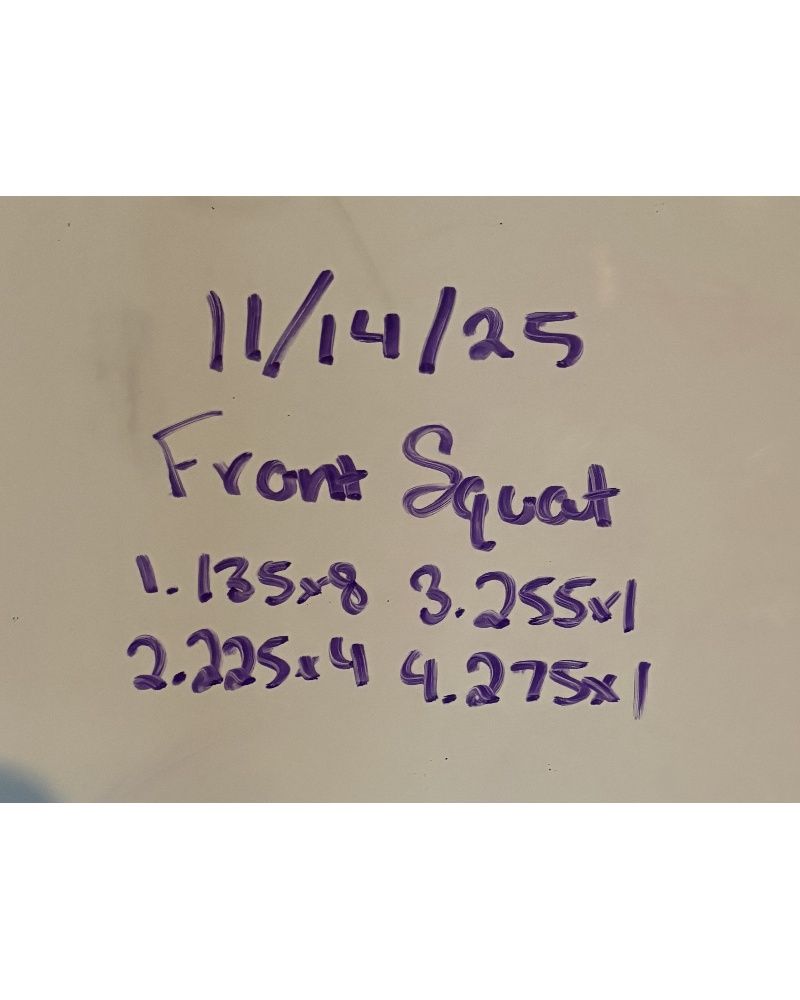 11/14/25
Front Squat
1. 135x8 3. 255x1
2. 225x4 4. 275x1